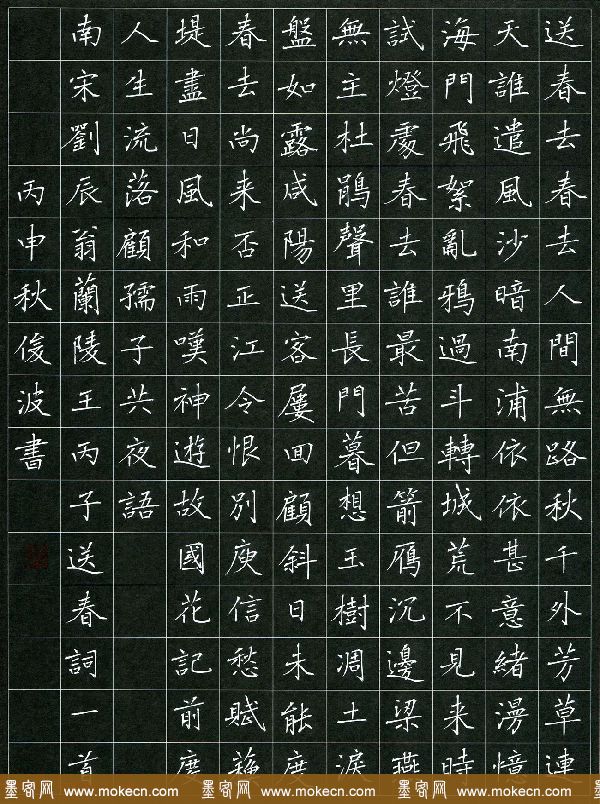 送春去春去人間無路秋千外芳草連
天誰遣風沙暗南浦依依甚意緒漫憶
海門飛絮亂鴉過斗轉城荒不見来時
試燈處春去誰最苦但箭鴈沉邊梁燕
無主杜鵑聲里長門暮想玉樹凋土淚
盤如露咸陽送客屢回顧斜日未能度
春去尚来否正江令恨別庾信愁賦蘇
堤盡日風和雨嘆神遊故國花記前度
人生流落顧孺子共夜語
南宋劉辰翁蘭陵王丙子送春詞一首
丙申秋俊波書
墨客网 www.mokecn.com 墨客网 www.mokecn.com 墨客网 www.mokecn.com